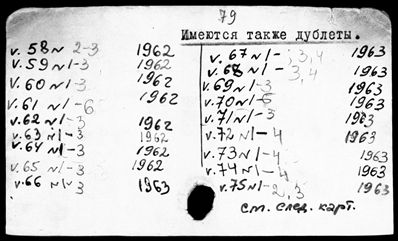 79
Имеются также дублеты.
v. 58 N 2-3 1962
v. 59 N 1-3 1962
v. 60 N 1-3 1962
v. 61 N 1-6 1962
v. 62 N 1-3 1962
v. 63 N 1-3 1962
v. 64 N 1-3 1962
v. 65 N 1-3 1962
v. 66 N 1-3 1963
v. 67 N 1-; 3, 4 1963
v. 68 N 1-3, 4 1963
v. 69 N 1-3 1963
v. 70 N 1-6 1963
v. 71 N 1-3 1963
v. 72 N 1-4 1963
v. 73 N 1-4 1963
v. 74 N 1-4 1963
v. 75 N 1-2, 3 1963
см. след. карт.